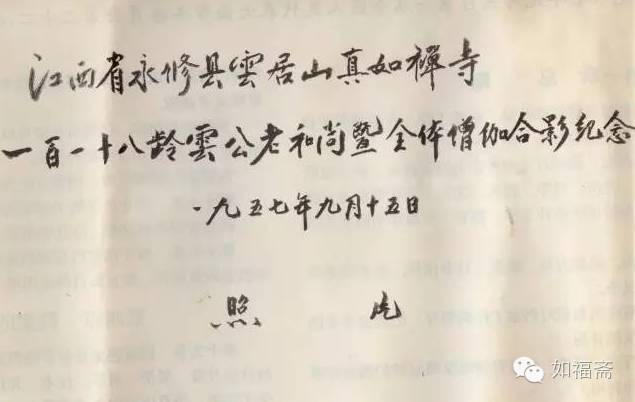 江西省永修县雲居山真如禅寺
一百一十八龄雲公老和尚暨全体僧伽合影纪念
一九五七年九月十五日
照片
如福斋